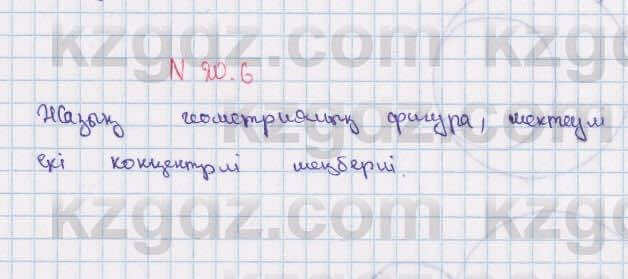 kzgdz.com kzgdz.com
N 20.6
Жазық геометриялық фигура, шектеулі
екі концентрлі шеңбермен.
kzgdz.com kzgdz.com